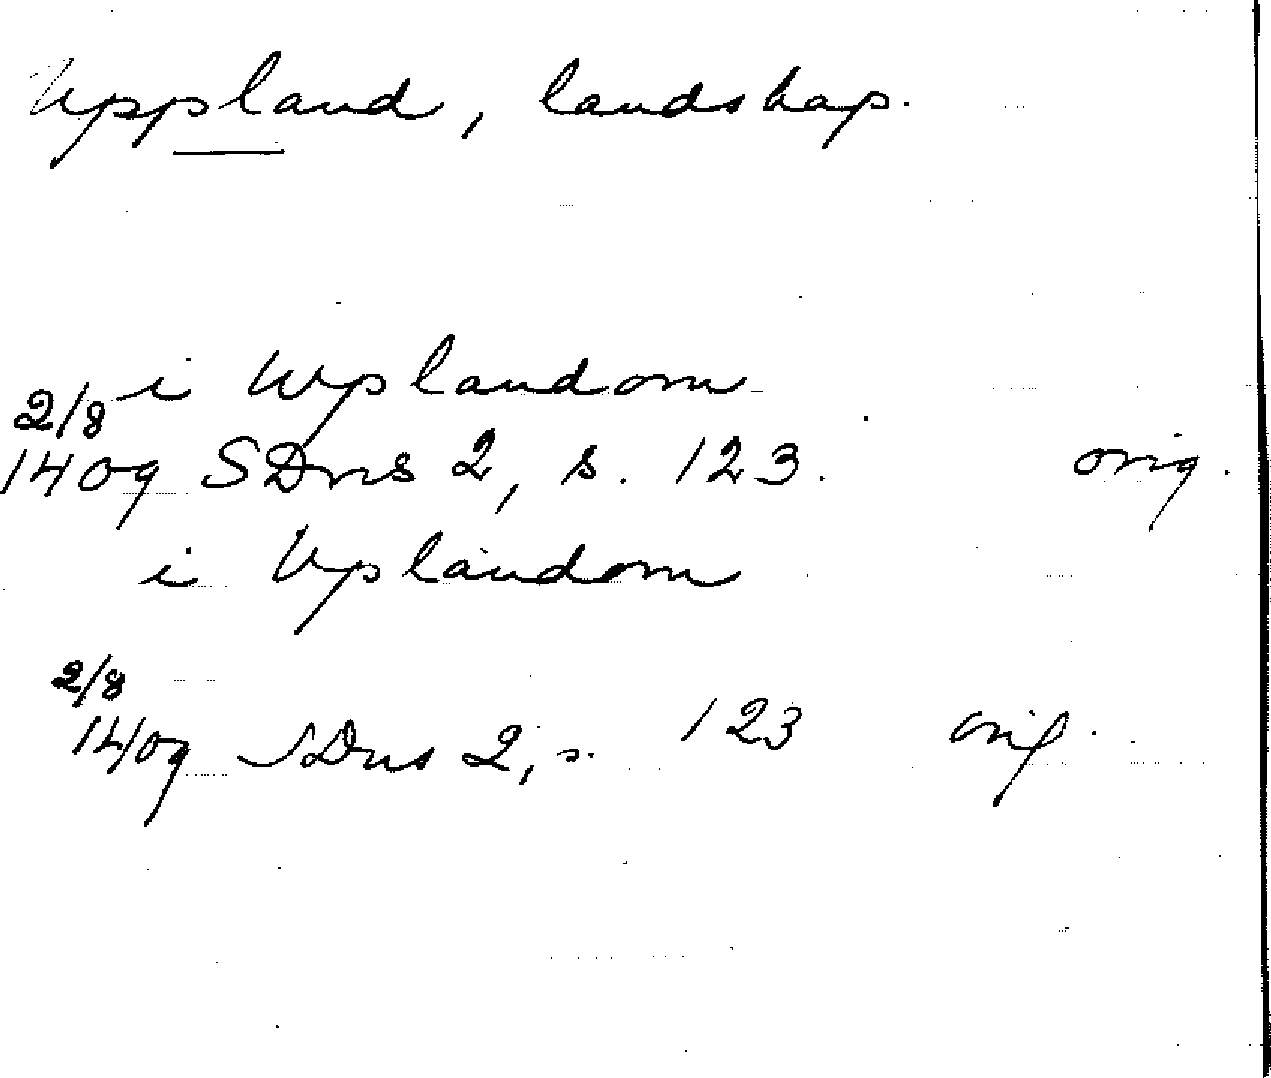 Uppland, landskap.
i Wplandom
2/8
1409 SDns 2, s. 123. orig.
i Vplandom
2/8
1409 SDns 2, s. 123 orig.